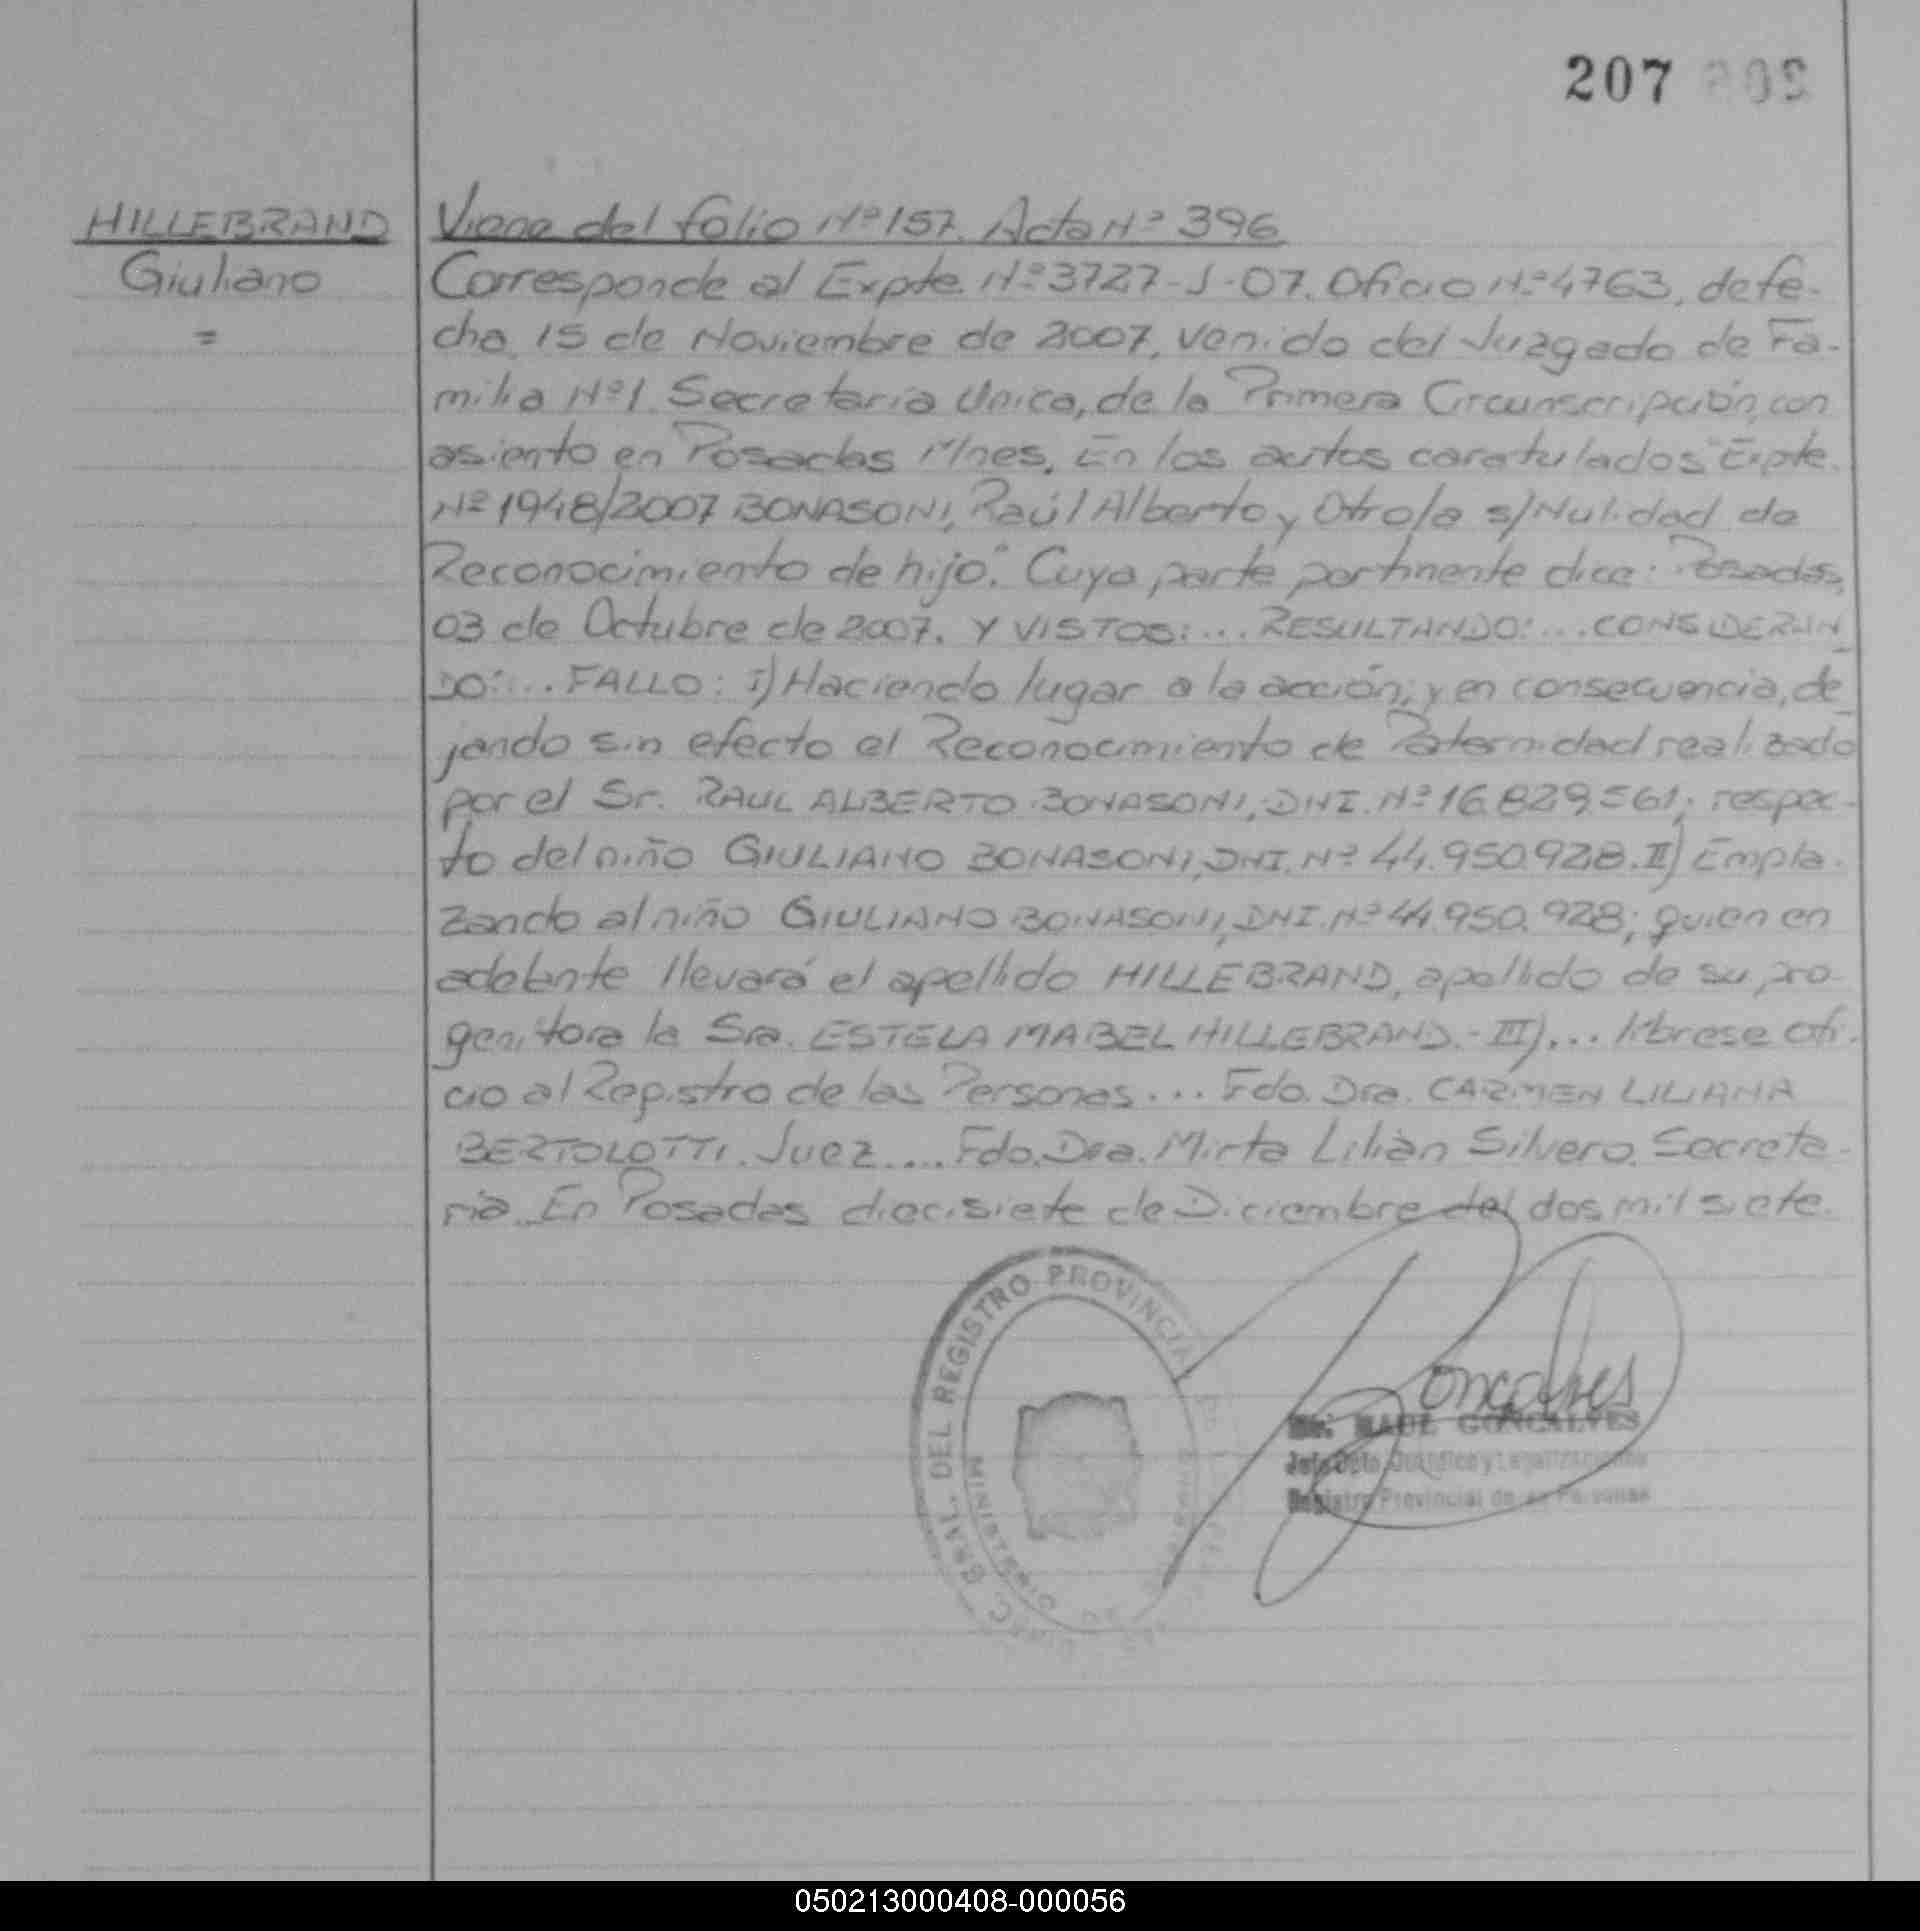 207 208
HILLEBRAND
Giuliano
=
Viene del folio Nº 157. Acta Nº 396
Corresponde al Expte. Nº 3727-J-07. Oficio Nº 4763, de fe-
cha 15 de Noviembre de 2007, venido del Juzgado de Fa-
milia Nº 1. Secretaría Unica, de la Primera Circunscripción, con
asiento en Posadas Mnes. En los autos caratulados "Expte.
Nº 1948/2007 BONASONI, Raúl Alberto y Otro/a s/Nulidad de
Reconocimiento de hijo". Cuya parte pertinente dice: Posadas,
03 de Octubre de 2007. Y VISTOS:... RESULTANDO:... CONSIDERAN
DO:... FALLO: I) Haciendo lugar a la acción, y en consecuencia, de
jando sin efecto el Reconocimiento de Paternidad realizado
por el Sr. RAUL ALBERTO BONASONI, DNI. Nº 16.829.561; respec-
to del niño GIULIANO BONASONI, DNI. Nº 44.950.928. II) Empla-
zando al niño GIULIANO BONASONI, DNI. Nº 44.950.928; quien en
adelante llevará el apellido HILLEBRAND, apellido de su pro-
genitora la Sra. ESTELA MABEL HILLEBRAND.- III)... librese ofi-
cio al Registro de las Personas... Fdo. Dra. CARMEN LILIANA
BERTOLOTTI. Juez.... Fdo. Dra. Mirta Lilián Silvero. Secreta-
ria. En Posadas diecisiete de Diciembre del dos mil siete.
DIREC. GRAL. DEL REGISTRO PROVINCIAL
MINISTERIO DE
Goncalves
RAUL GONCALVES
Jefe Dpto. Jurídico y Legalizaciones
Registro Provincial de las Personas
050213000408-000056